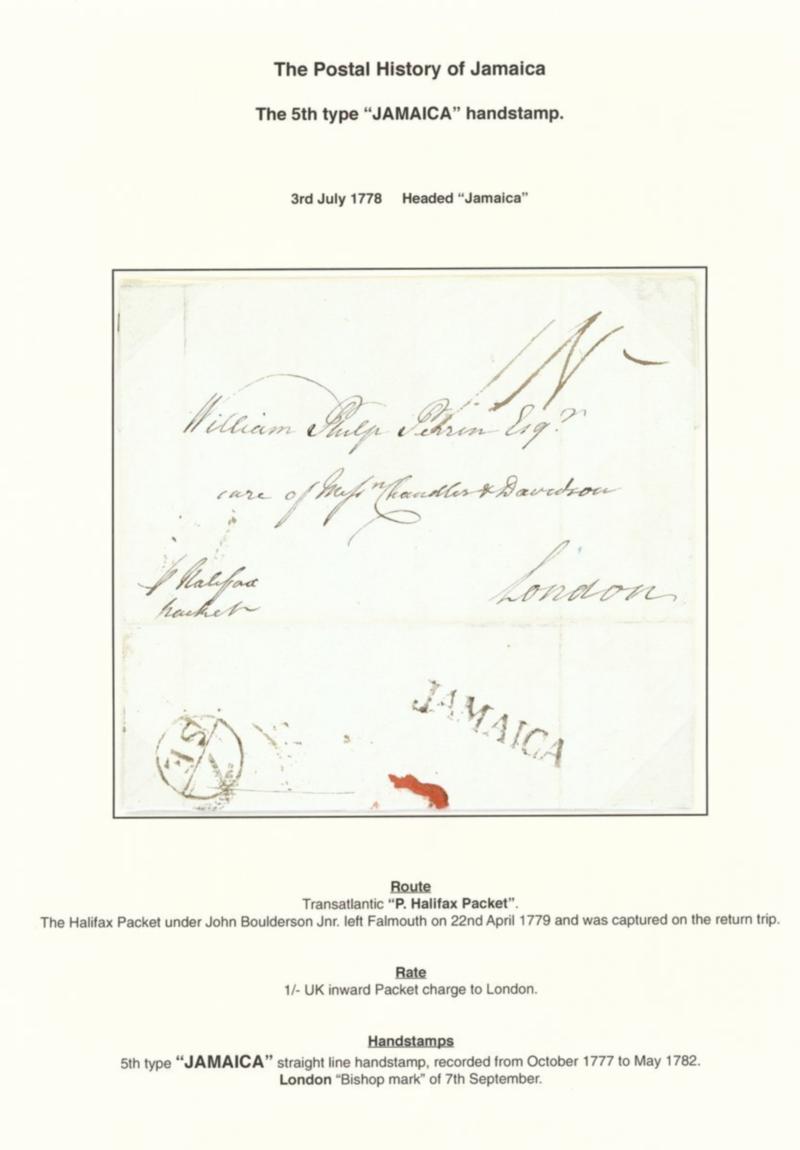 The Postal History of Jamaica
The 5th type “JAMAICA” handstamp.
3rd July 1778 Headed “Jamaica”
1N-
William Philp Perrin Esqr.
care of Messrs Chandler & Davidson
P Halifax
Packet
London
JAMAICA
SE
7
Route
Transatlantic “P. Halifax Packet”.
The Halifax Packet under John Boulderson Jnr. left Falmouth on 22nd April 1779 and was captured on the return trip.
Rate
1/- UK inward Packet charge to London.
Handstamps
5th type “JAMAICA” straight line handstamp, recorded from October 1777 to May 1782.
London “Bishop mark” of 7th September.